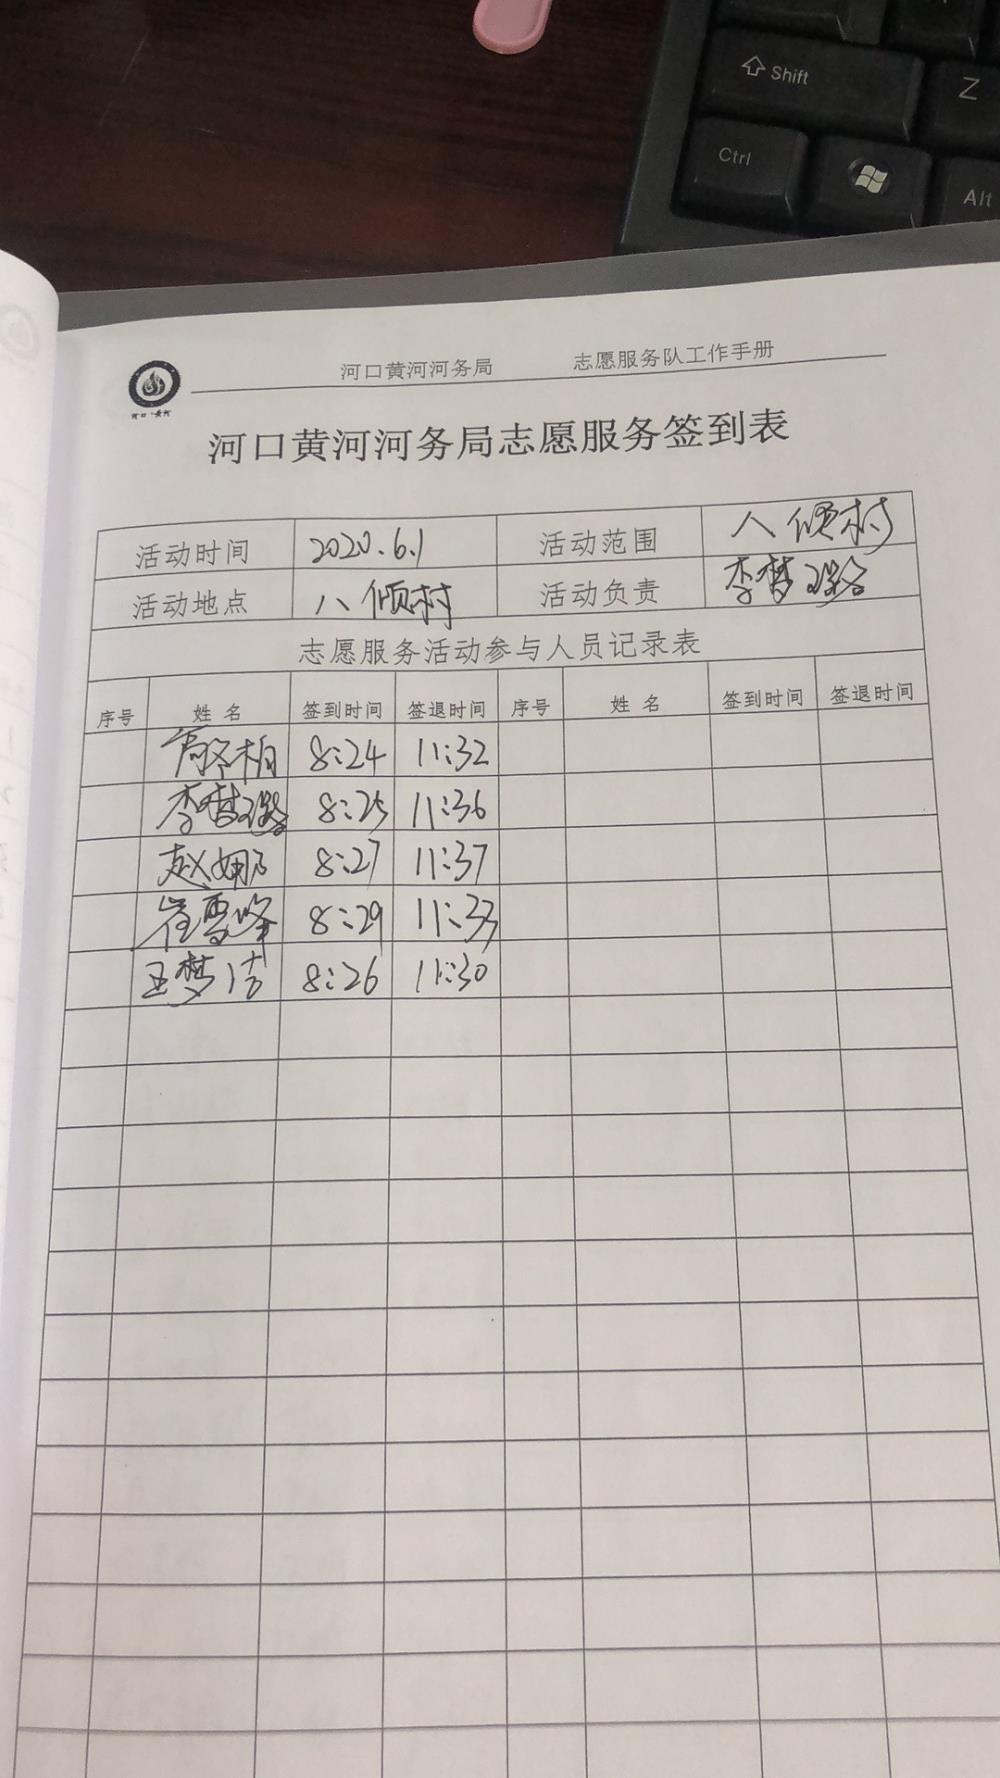 Shift
Z
Ctrl
Alt
河口黄河河务局 志愿服务队工作手册
河口·黄河
河口黄河河务局志愿服务签到表
活动时间 2020.6.1 活动范围 八顷村
活动地点 八顷村 活动负责 李梦璐
志愿服务活动参与人员记录表
序号 姓名 签到时间 签退时间 序号 姓名 签到时间 签退时间
8:24 11:32
李梦璐 8:25 11:36
赵娜 8:27 11:37
崔雪峰 8:29 11:33
王梦洁 8:26 11:30